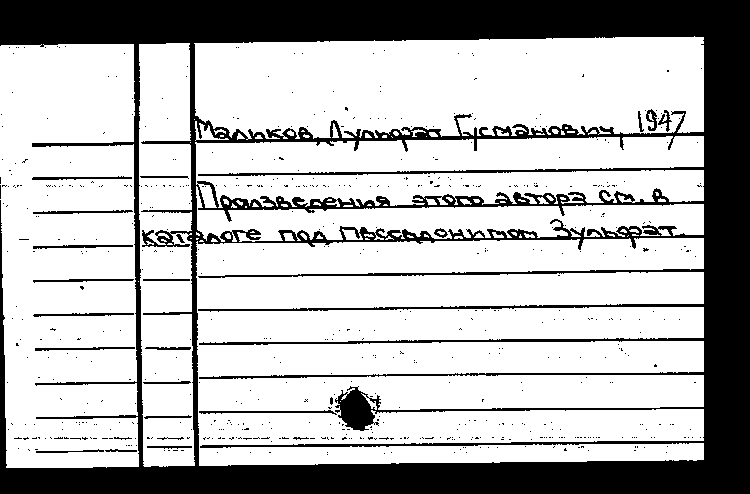 Маликов, Дульфат Гусманович, 1947
Произведения этого автора см. в
каталоге под псевдонимом Зульфат.